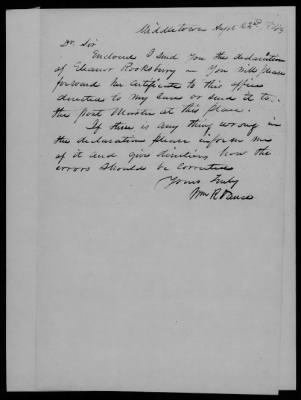 Middletown Sept 22d
Dr. Sir
Enclosed I send you the declaration
of Eleanor Rooksbury — You will please
forward her certificate to this office
directed to my care or send it to
the Post Master at this place.
If there is any thing wrong in
the declaration please inform me
of it and give directions how the
errors should be corrected
Yours Truly
Wm R